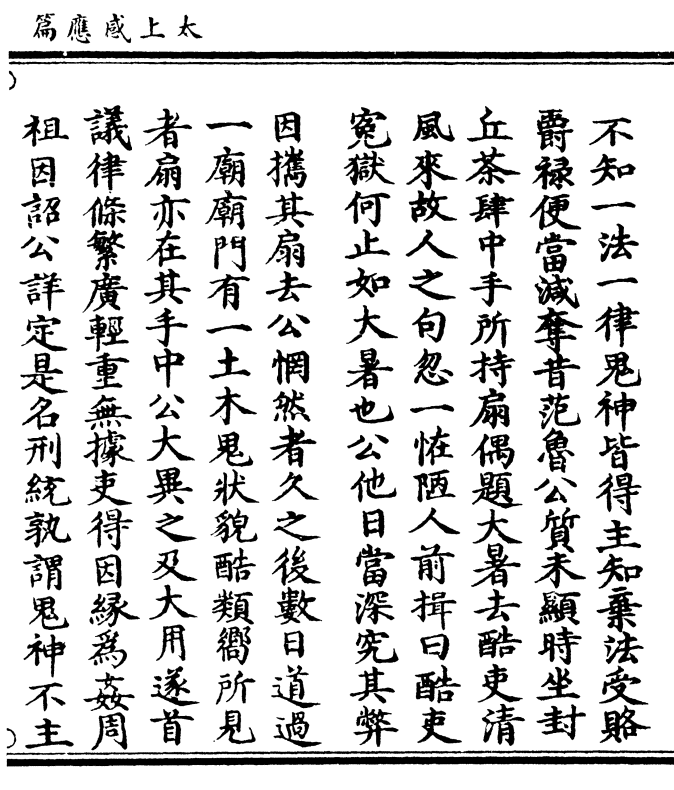 太上感應篇
不知一法一律鬼神皆得主知棄法受賂
爵祿便當減奪昔范魯公質未顯時坐封
丘茶肆中手所持扇偶題大暑去酷吏清
風來故人之句忽一恠陋人前揖曰酷吏
寃獄何止如大暑也公他日當深究其弊
因擕其扇去公惘然者久之後數日道過
一廟廟門有一土木鬼狀貌酷類嚮所見
者扇亦在其手中公大異之及大用遂首
議律條繁廣輕重無據吏得因緣爲姦周
祖因詔公詳定是名刑統孰謂鬼神不主